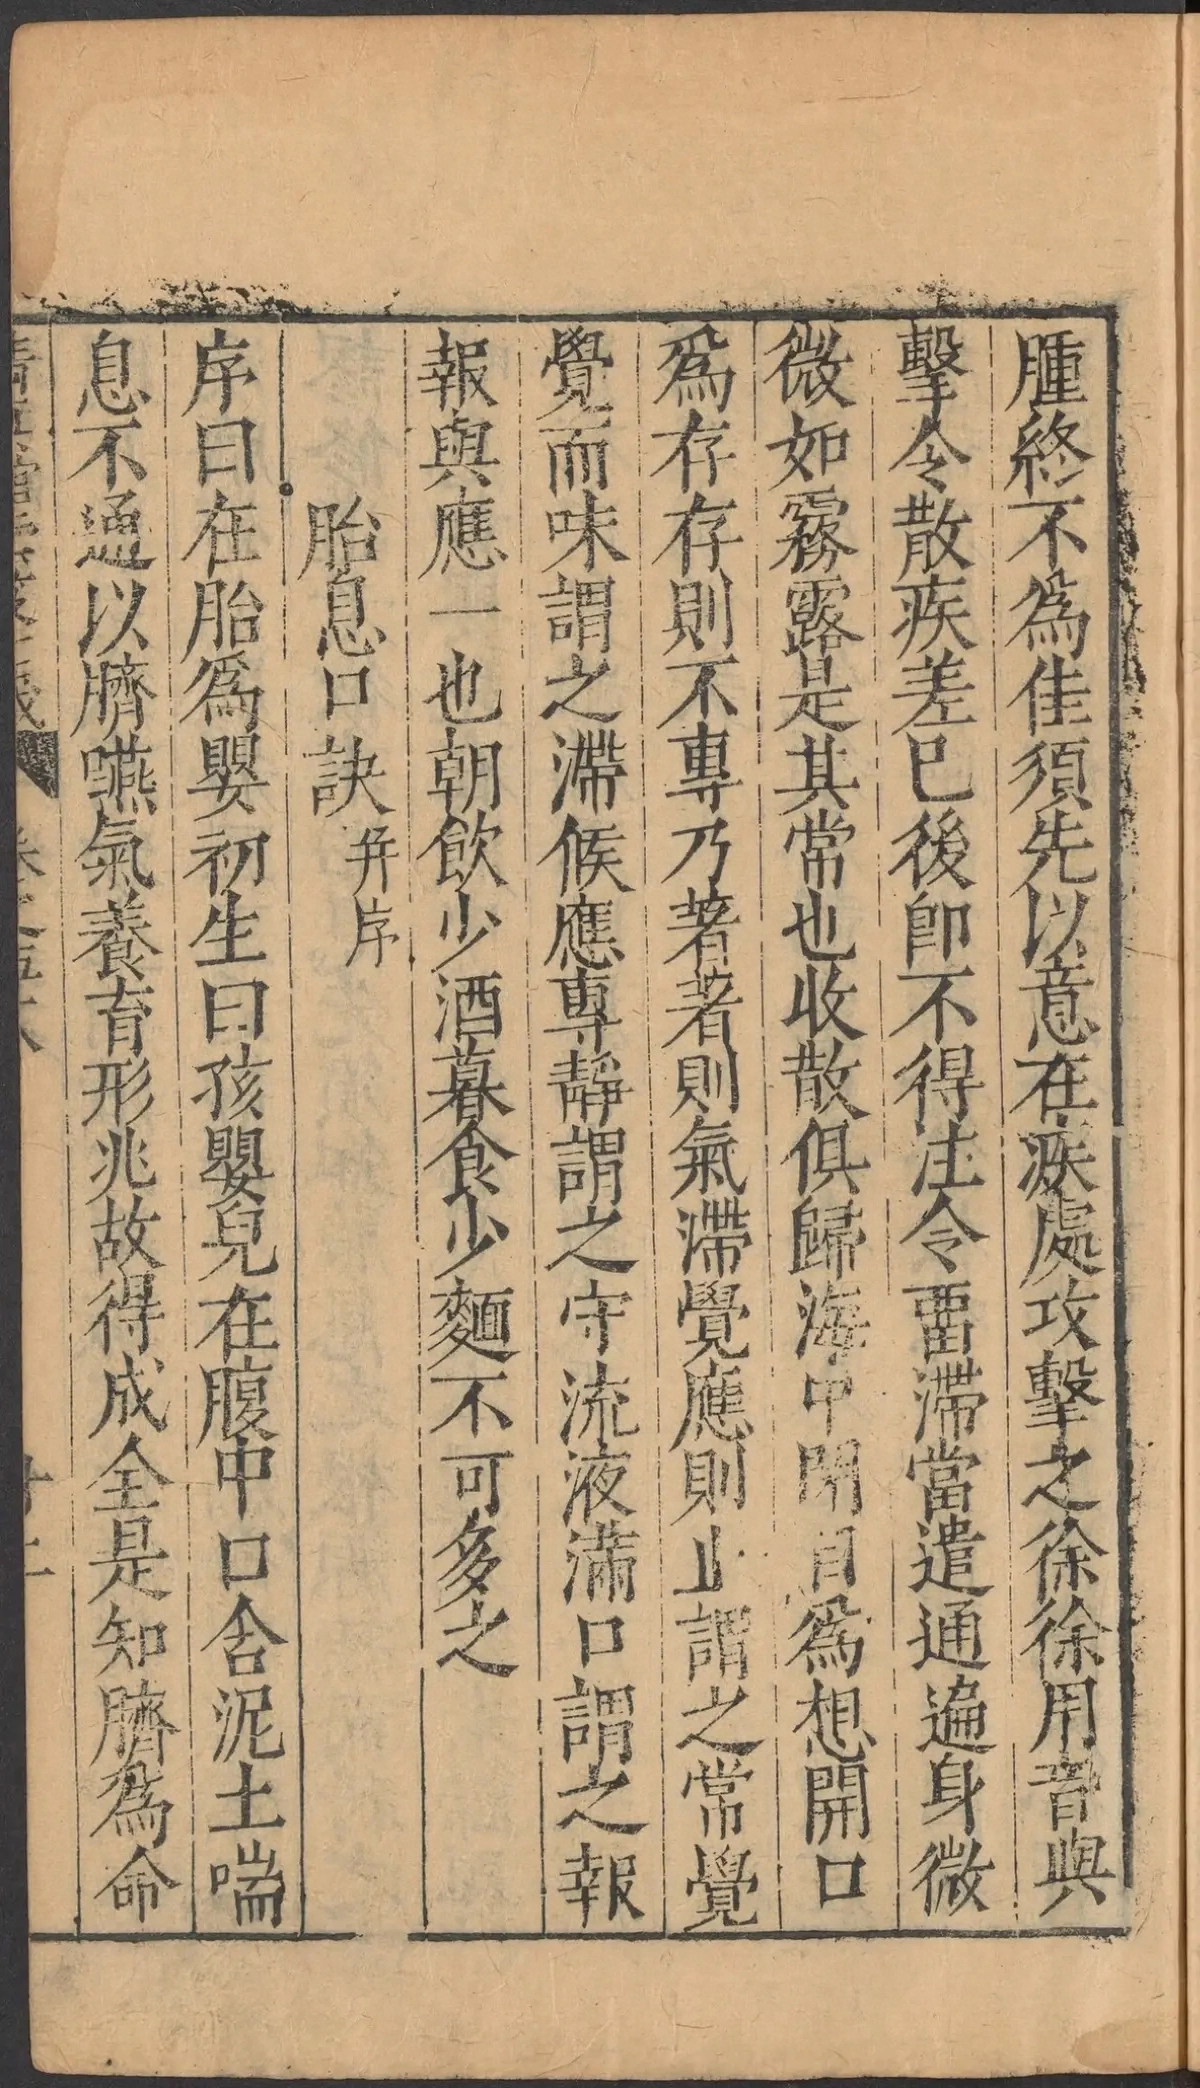 腫終不為佳須先以意在疾處攻擊之徐徐用音與
擊令散疾差已後即不得注令畱滯當遣通遍身微
微如霧露是其常也收散俱歸海中閉目為想開口
為存存則不專乃著著則氣滯覺應則止謂之常覺
覺而味謂之滯候應專靜謂之守流液滿口謂之報
報與應一也朝飲少酒暮食少麵不可多之
胎息口訣并序
序曰在胎為嬰初生曰孩嬰兒在腹中口含泥土喘
息不通以臍嚥氣養育形兆故得成全是知臍為命